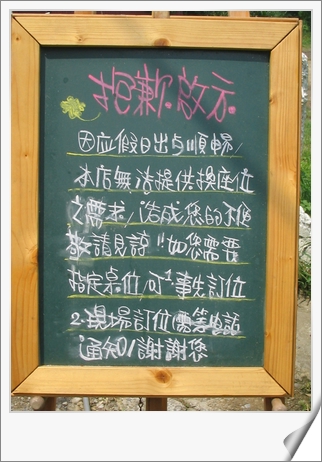 抱歉啟示
因应假日出与順暢,
本店無法提供換座位
之需求,造成您的不便
敬請見諒!!如您需要
指定桌位,可1.事先訂位
2.現場訂位(需等电話
通知)謝謝您